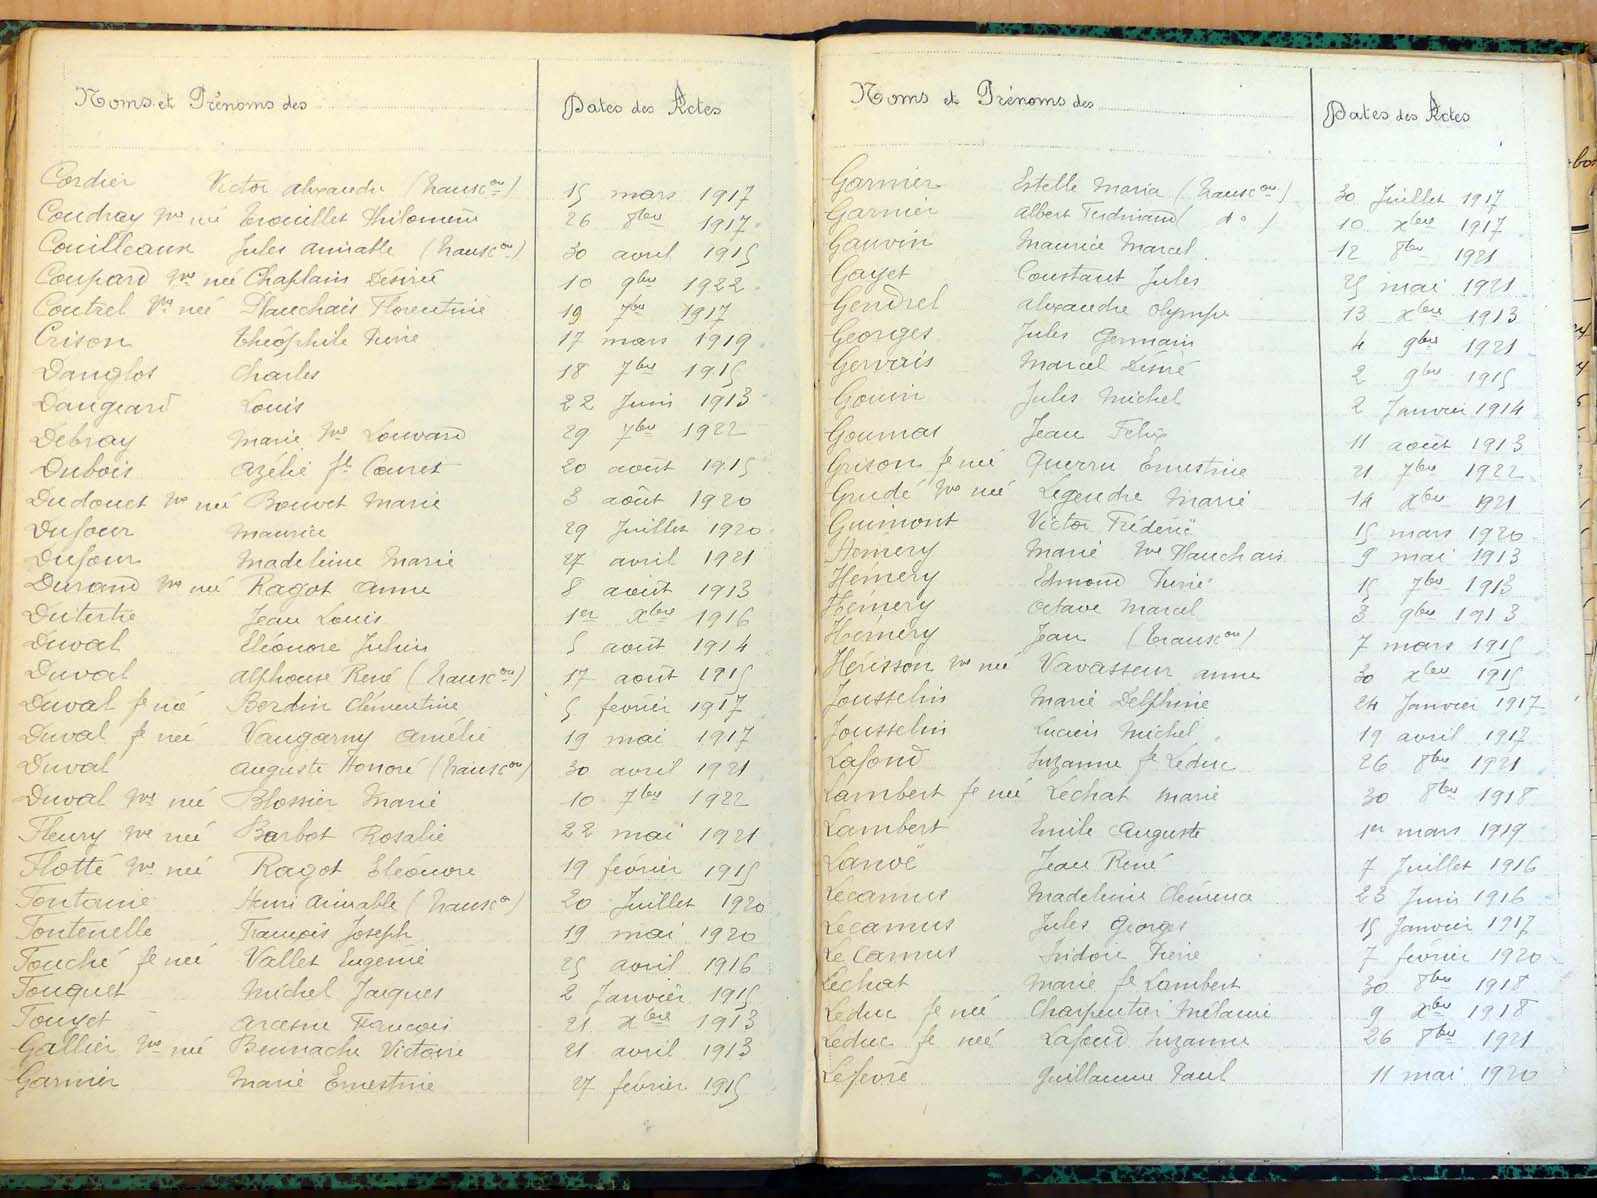 Noms et Prénoms des
Dates des Actes
Cordier Victor Alexandre (transcon) 15 mars 1917
Coudray Vve née Trouillet Philomène 26 8bre 1917
Couilleaux Jules Aimable (transcon) 30 avril 1915
Coupard Vve née Chaplain Désirée 10 9bre 1922
Coutrel Vve née Plauchais Florentine 19 7bre 1917
Crison Théophile Pierre 17 mars 1919
Danglos Charles 18 7bre 1915
Dangeard Louis 22 Juin 1913
Debray Marie Vve Louvard 29 7bre 1922
Dubois Azélie fe Couret 20 août 1915
Dudouet Vve née Bouvet Marie 3 août 1920
Dufour Maurice 29 Juillet 1920
Dufour Madeleine Marie 27 avril 1921
Durand Vve née Ragot Anne 8 août 1913
Dutertre Jean Louis 1er Xbre 1916
Duval Eléonore Julien 5 août 1914
Duval Alphonse René (transcon) 17 août 1915
Duval fe née Bordin Clémentine 5 février 1917
Duval fe née Vaugarny Amélie 19 mai 1917
Duval Auguste Honoré (transcon) 30 avril 1921
Duval Vve née Blossier Marie 10 7bre 1922
Fleury Vve née Barbot Rosalie 22 mai 1921
Flotté Vve née Ragot Eléonore 19 février 1915
Fontaine Henri Aimable (transcon) 20 Juillet 1920
Fontenelle François Joseph 19 mai 1920
Fouché fe née Vallet Eugénie 25 avril 1916
Fouquet Michel Jacques 2 Janvier 1915
Fouyet Arcesne François 21 Xbre 1913
Gallier Vve née Beunache Victoire 21 avril 1913
Garnier Marie Ernestine 27 février 1915
Noms et Prénoms des
Dates des Actes
Garnier Estelle Maria (transcon) 30 Juillet 1917
Garnier Albert Ferdinand (do) 10 Xbre 1917
Gauvin Maurice Marcel 12 8bre 1921
Gayet Constant Jules 25 mai 1921
Gendrel Alexandre Olympe 13 Xbre 1913
Georges Jules Germain 4 9bre 1921
Gervais Marcel Désiré 2 9bre 1915
Gouin Jules Michel 2 Janvier 1914
Goumas Jean Felix 11 août 1913
Grison fe née Querru Ernestine 21 7bre 1922
Grudé Vve née Legendre Marie 14 Xbre 1921
Guimont Victor Fréderic 15 mars 1920
Hémery Marie Vve Plauchais 9 mai 1913
Hémery Edmond Pierre 15 7bre 1913
Hémery Octave Marcel 3 9bre 1913
Hémery Jean (transcon) 7 mars 1915
Hérisson Vve née Vavasseur Anne 30 Xbre 1915
Jousselin Marie Delphine 24 Janvier 1917
Jousselin Lucien Michel 19 avril 1917
Lafond Suzanne fe Leduc 26 8bre 1921
Lambert fe née Lechat Marie 30 8bre 1918
Lambert Emile Auguste 1er mars 1919
Lanoë Jean René 7 Juillet 1916
Lecamus Madeleine Clémence 23 Juin 1916
Lecamus Jules Georges 15 Janvier 1917
Le Camus Isidore Pierre 7 février 1920
Lechat Marie fe Lambert 30 8bre 1918
Leduc fe née Charpentier Mélanie 9 Xbre 1918
Leduc fe née Lafond Suzanne 26 8bre 1921
Lefevre Guillaume Paul 11 mai 1920